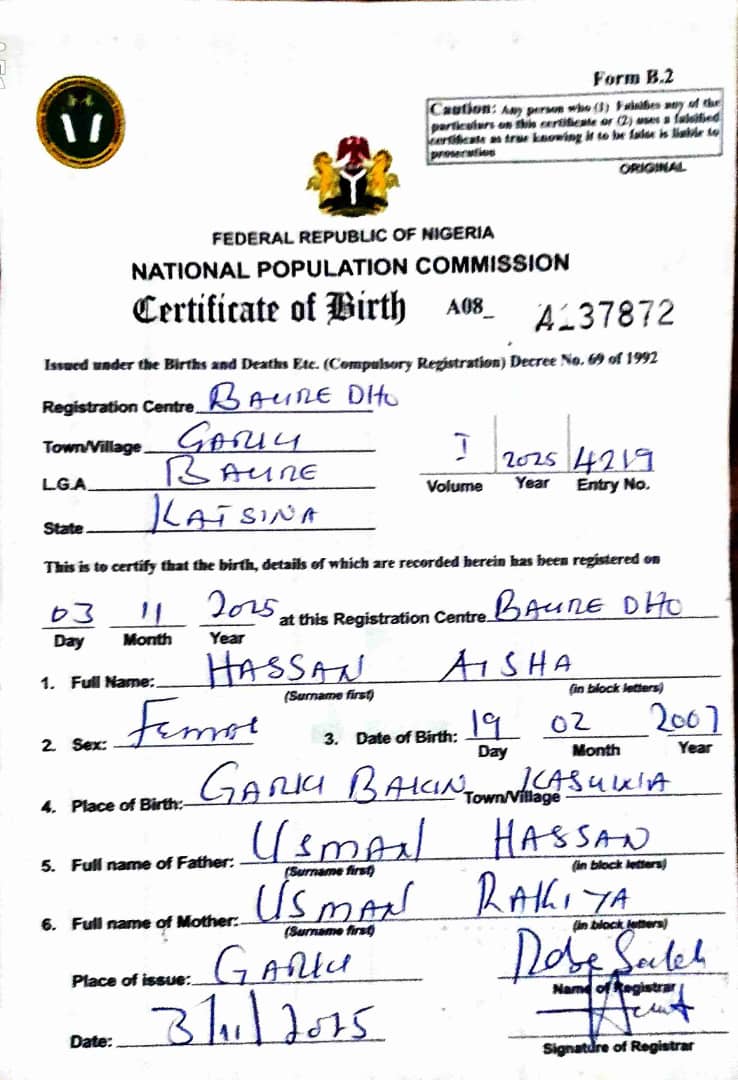 Form B.2
Caution: Any person who (1) Falsifies any of the
particulars on this certificate or (2) uses a falsified
certificate as true knowing it to be false is liable to
prosecution
ORIGINAL
FEDERAL REPUBLIC OF NIGERIA
NATIONAL POPULATION COMMISSION
Certificate of Birth A08_ 37872
Issued under the Births and Deaths Etc. (Compulsory Registration) Decree No. 69 of 1992
Registration Centre BAURE DHO
Town/Village GARKI
L.G.A BAURE
I 2025 4219
Volume Year Entry No.
State KATSINA
This is to certify that the birth, details of which are recorded herein has been registered on
03 11 2025 at this Registration Centre BAURE DHO
Day Month Year
1. Full Name: HASSAN AISHA
(Surname first) (in block letters)
2. Sex: 3. Date of Birth: 19 02 2007
Day Month Year
4. Place of Birth: GARKI BAKIN Town/Village KASUWA
5. Full name of Father: USMAN HASSAN
(Surname first) (in block letters)
6. Full name of Mother: USMAN RAKIYA
(Surname first) (in block letters)
Place of issue: GARKI
Name of Registrar
Date: 3/11/2025
Signature of Registrar